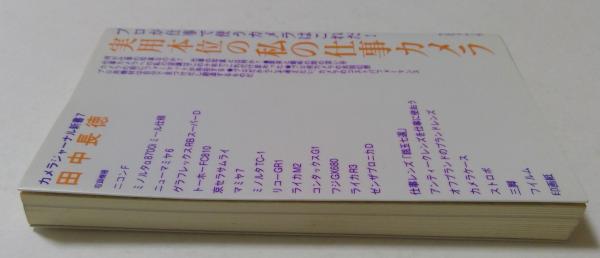 プロが仕事で使うカメラはこれだ!
実用本位の私の仕事カメラ
カメラジャーナル新書7
田中長徳
収録機種
ニコンF
ミノルタα8700iミール仕様
ニューマミヤ6
グラフレックスRBスーパーD
トーホーFC810
京セラサムライ
マミヤ7
ミノルタTC-1
リコーGR1
ライカM2
コンタックスG1
フジGX680
ライカR3
ゼンザブロニカD
仕事レンズ「銘玉七選」
アンティークレンズを仕事に使おう
オフブランドのブランドレンズ
カメラケース
ストロボ
三脚
フィルム
印画紙